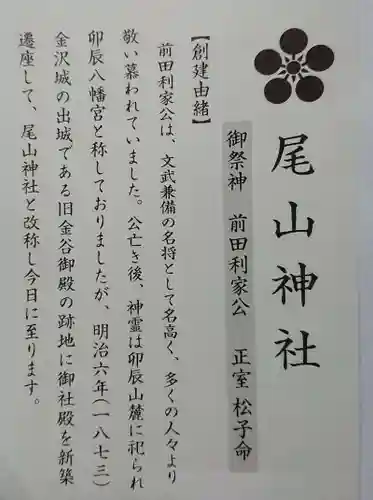 尾山神社
御祭神　前田利家公　正室 松子命
【創建由緒】
前田利家公は、文武兼備の名将として名高く、多くの人々より
敬い慕われていました。公亡き後、神霊は卯辰山麓に祀られ
卯辰八幡宮と称しておりましたが、明治六年(一八七三)
金沢城の出城である旧金谷御殿の跡地に御社殿を新築
遷座して、尾山神社と改称し今日に至ります。